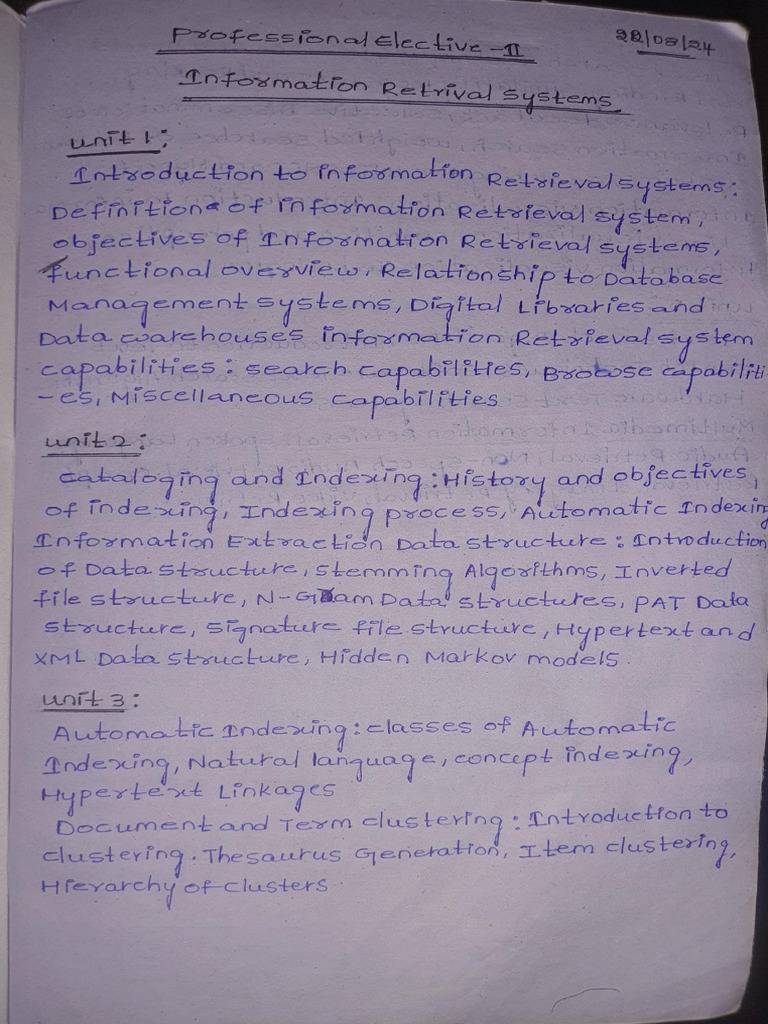 Professional Elective -II
22/08/24
Information Retrival systems
unit 1:
Introduction to information Retrieval systems:
Definition of information Retrieval system,
objectives of Information Retrieval systems,
functional overview, Relationship to Database
Management systems, Digital Libraries and
Data warehouses information Retrieval system
capabilities: search capabilities, Browse capabiliti
-es, Miscellaneous capabilities
unit 2:
cataloging and Indexing: History and objectives,
of indexing, Indexing process, Automatic Indexing
Information Extraction Data structure: Introduction
of Data structure, stemming Algorithms, Inverted
file structure, N-Gram Data structures, PAT Data
structure, signature file structure, Hypertext and
XML Data structure, Hidden Markov models.
unit 3:
Automatic Indexing: classes of Automatic
Indexing, Natural language, concept indexing,
Hypertext Linkages
Document and Term clustering: Introduction to
clustering. Thesaurus Generation, Item clustering,
Hierarchy of clusters.